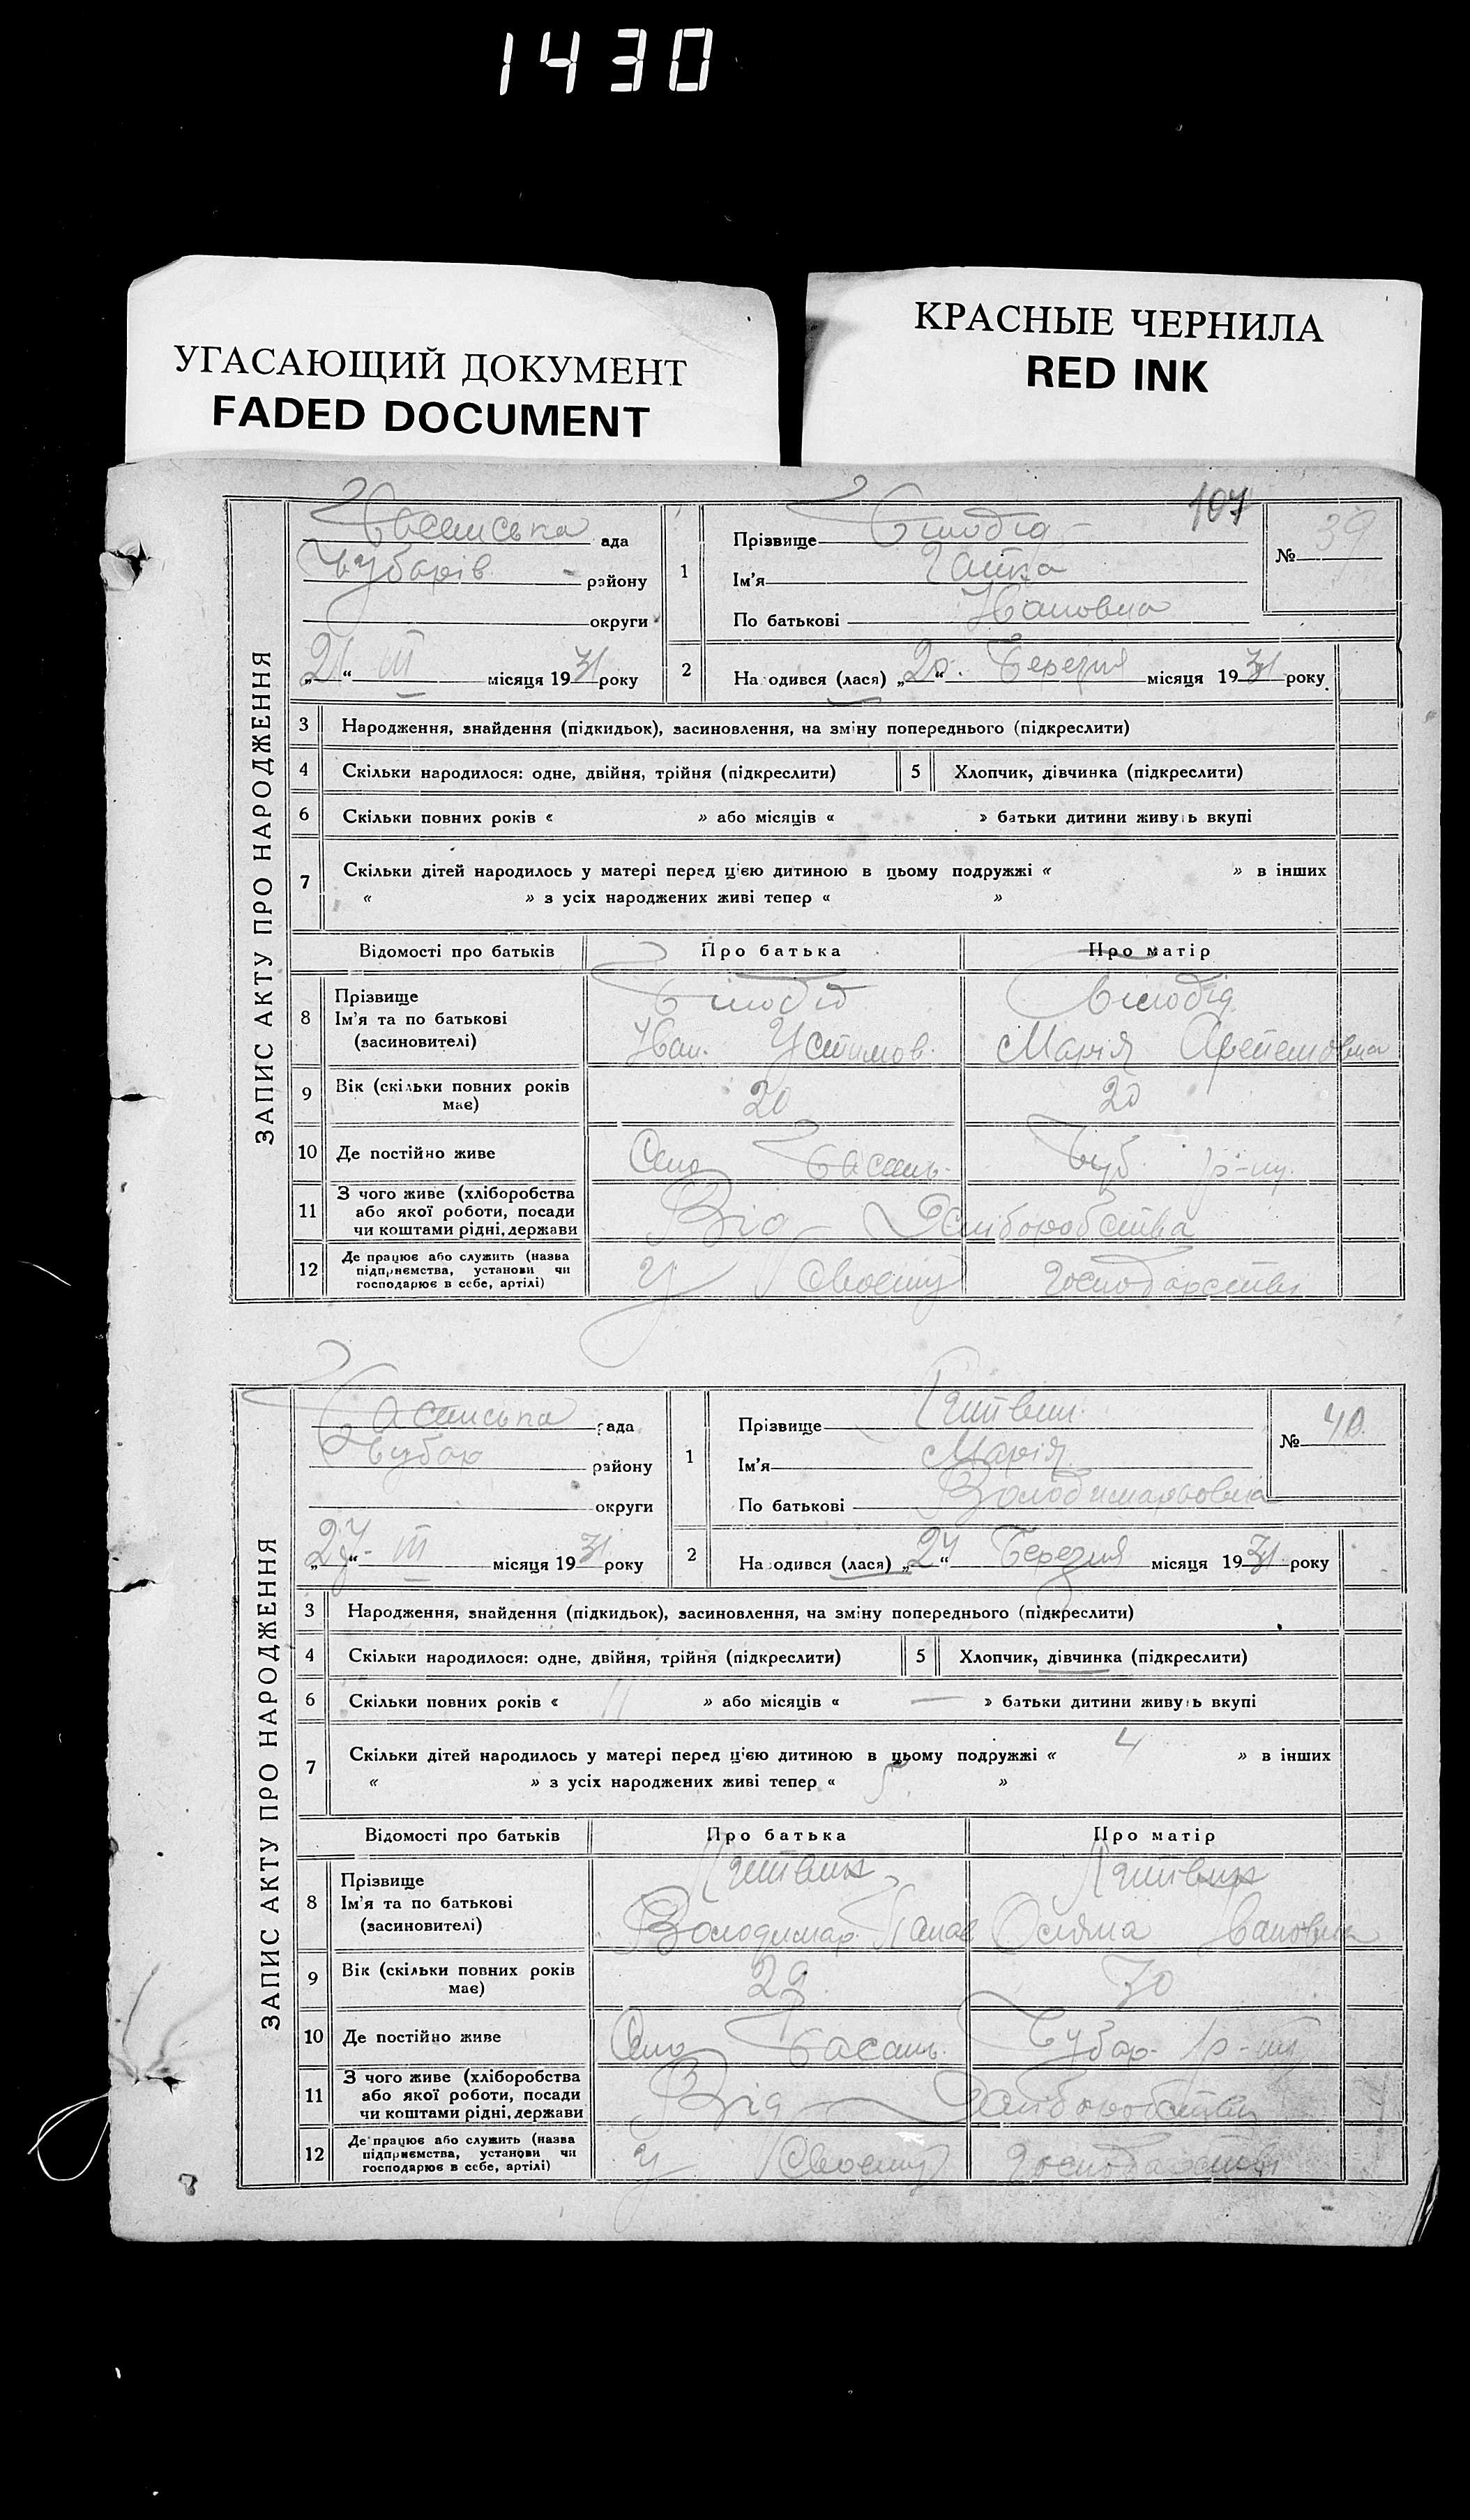 1430
УГАСАЮЩИЙ ДОКУМЕНТ
FADED DOCUMENT
КРАСНЫЕ ЧЕРНИЛА
RED INK
107
ЗАПИС АКТУ ПРО НАРОДЖЕННЯ
Басанська ада
Чубарів районy
округи
„21“ III місяця 1931 року
1 Прізвище Білодід
Ім'я Галька
По батькові Ивановна
№ 39
2 На одився (лася) „20“ Березня місяця 1931 року
3 Народження, знайдення (підкидьок), засиновлення, на зміну попереднього (підкреслити)
4 Скільки народилося: одне, двійня, трійня (підкреслити) 5 Хлопчик, дівчинка (підкреслити)
6 Скільки повних років « » або місяців « » батьки дитини живуть вкупі
7 Скільки дітей народилось у матері перед цією дитиною в цьому подружжі « » в інших
« » з усіх народжених живі тепер « »
Відомості про батьків Про батька Про матір
8 Прізвище
Ім'я та по батькові
(засиновителі)
Білодід
Иван. Устимов.
Білодід
Марія
9 Вік (скільки повних років
має) 20 20
10 Де постійно живе Село Басань. Чуб. р-ну.
11 З чого живе (хліборобства
або якої роботи, посади
чи коштами рідні, держави
Від Хліборобства
12 Де працює або служить (назва
підприємства, установи чи
господарює в себе, артілі)
У Своему господарстві
ЗАПИС АКТУ ПРО НАРОДЖЕННЯ
Басанська рада
Чубар району
округи
„27“ III місяця 1931 року
1 Прізвище Литвин
Ім'я Марія
По батькові Володимаровна
№ 40
2 На одився (лася) „24“ Березня місяця 1931 року
3 Народження, знайдення (підкидьок), засиновлення, на зміну попереднього (підкреслити)
4 Скільки народилося: одне, двійня, трійня (підкреслити) 5 Хлопчик, дівчинка (підкреслити)
6 Скільки повних років « 11 » або місяців « — » батьки дитини живуть вкупі
7 Скільки дітей народилось у матері перед цією дитиною в цьому подружжі « 4 » в інших
« » з усіх народжених живі тепер « 5 »
Відомості про батьків Про батька Про матір
8 Прізвище
Ім'я та по батькові
(засиновителі)
Литвин
Володимар Панас
Литвин
Ивановна
9 Вік (скільки повних років
має) 29 30
10 Де постійно живе Село Басань. Чубар. р-ну
11 З чого живе (хліборобства
або якої роботи, посади
чи коштами рідні, держави
Від Хліборобства
12 Де працює або служить (назва
підприємства, установи чи
господарює в себе, артілі)
У Своему господарстві